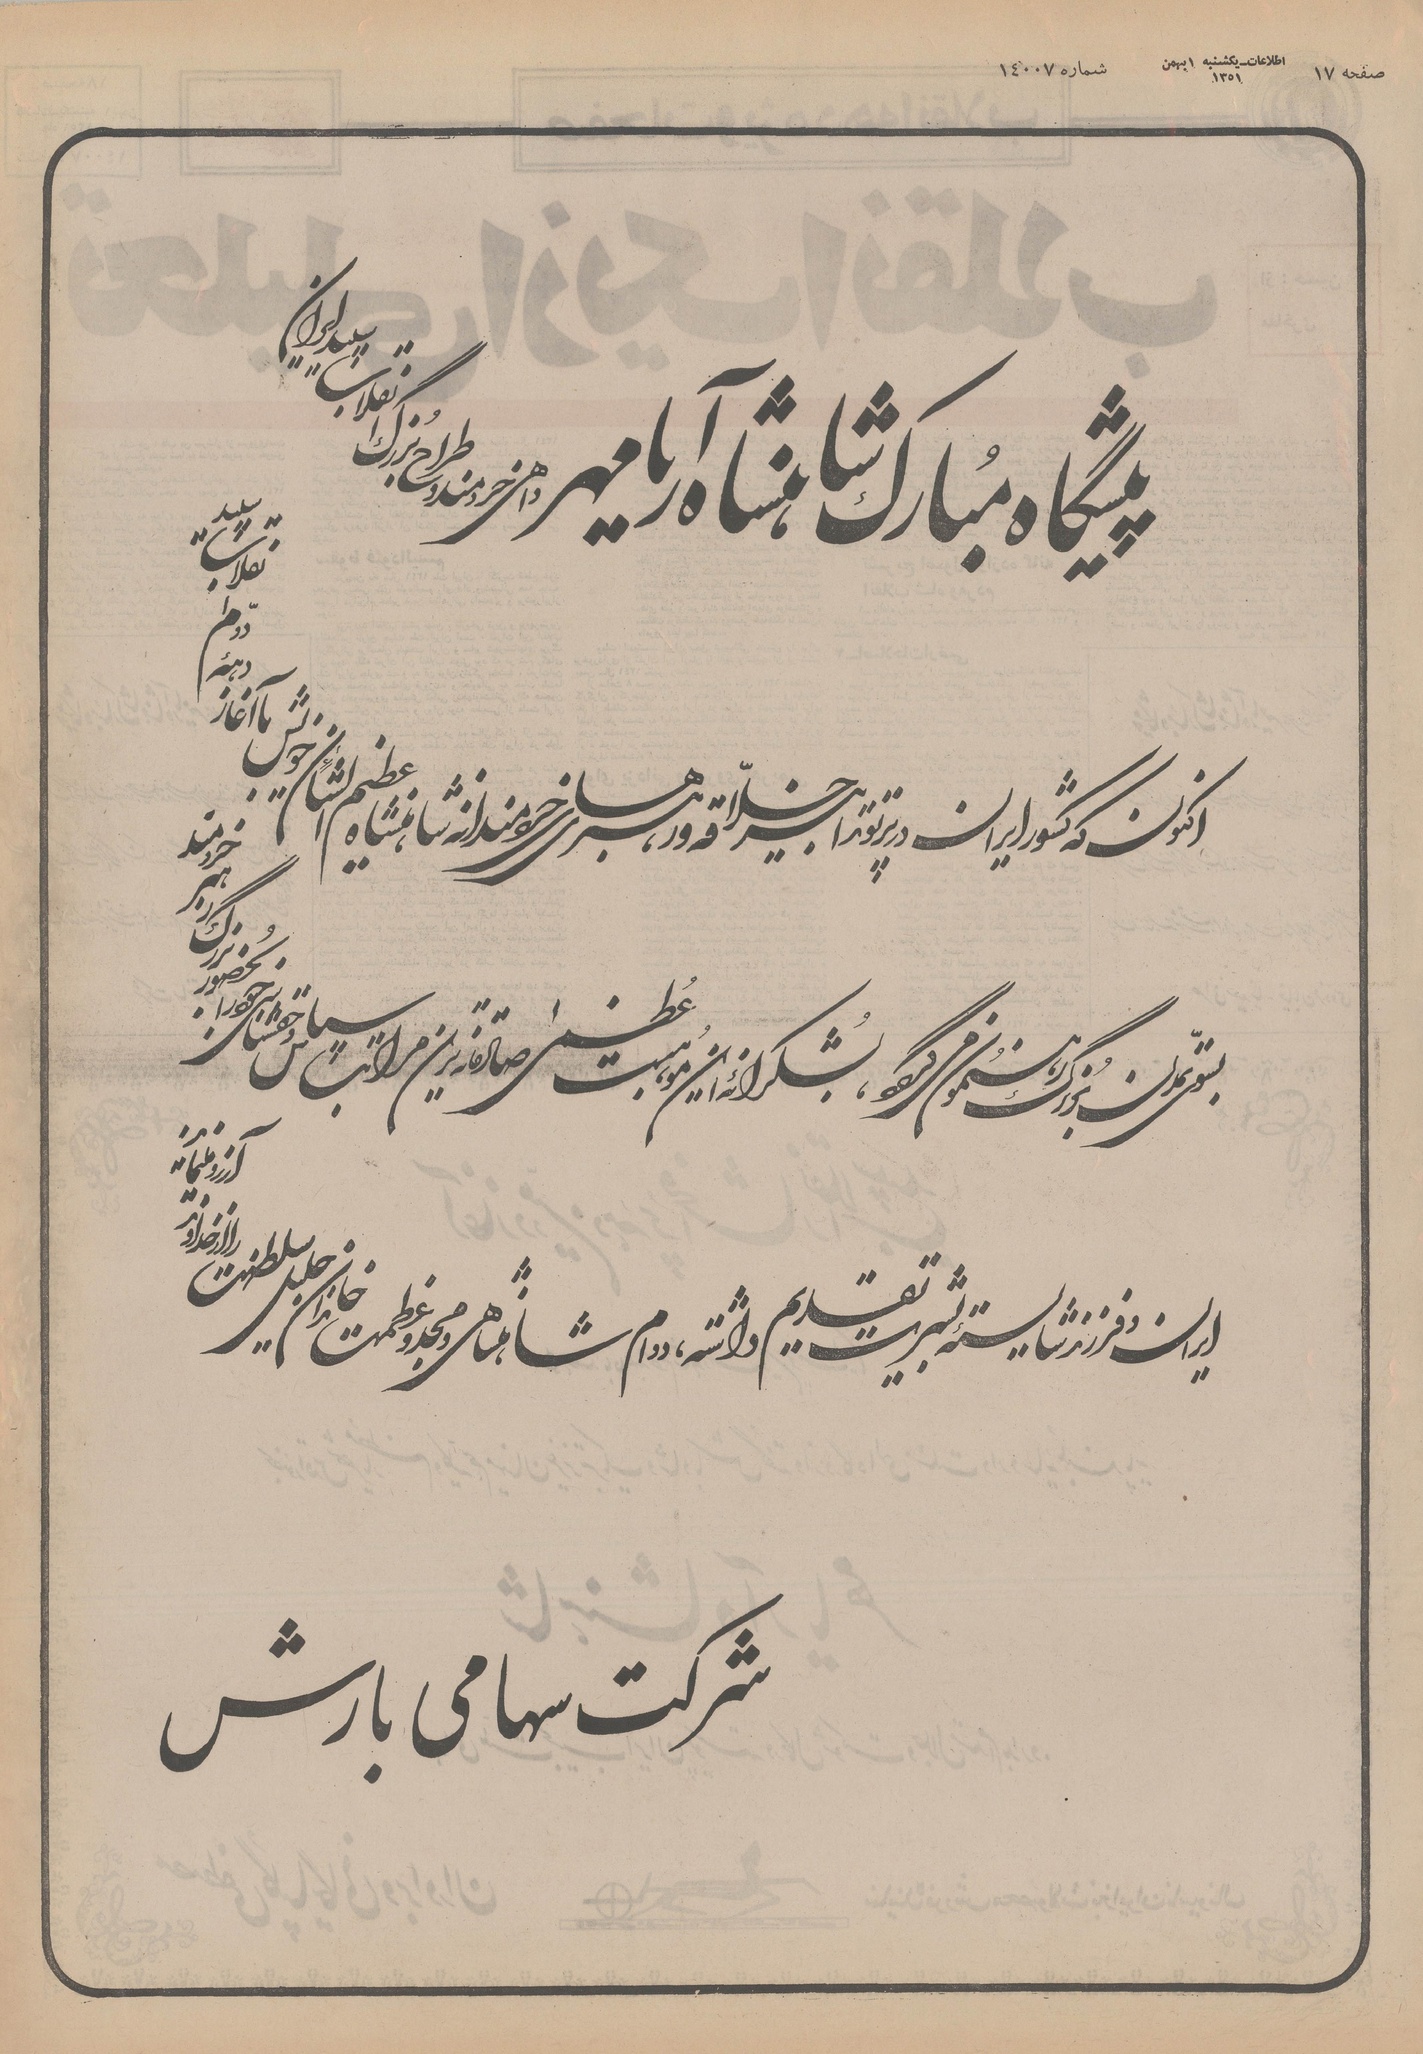 صفحه ۱۷
اطلاعات ـ یکشنبه ۱ بهمن ۱۳۵۱
شماره ۱۴۰۰۷
پیشگاه مبارک شاهنشاه آریامهر داهی خردمند و طراح بزرگ انقلاب سپید ایران
اکنون که کشور ایران در پرتو تدابیر خلاقه و رهبریهای خردمندانه شاهنشاه عظیم الشأن خویش با آغاز دهۀ دوّم انقلاب سپید
بسوی تمدن بزرگ رهنمون می گردد، بشکرانه این موهبت عظمی صادقانه ترین مراتب سپاس و حقشناسی خود را بحضور بزرگ رهبر خردمند
ایران و فرزند شایستۀ بشریت تقدیم داشته، دوام شاهنشاهی و مجد و عظمت خاندان جلیل سلطنت را از خداوند آرزومندیم
شرکت سهامی بارش